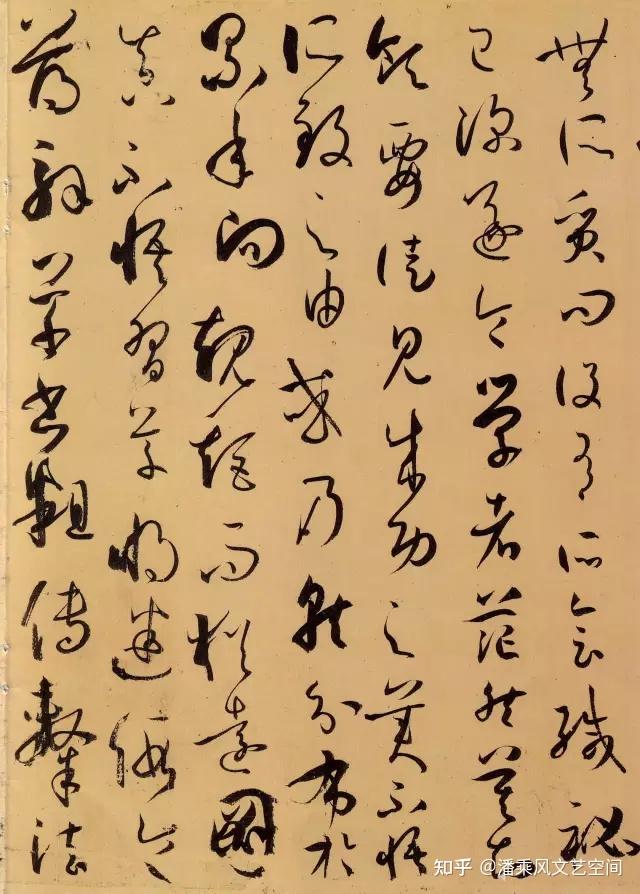 無所質問設有所會緘秘
已深遂令學者茫然莫知
領要徒見成功之美不悟
所致之由或乃就分布於
累年向規矩而猶遠圖
真不悟習草將迷假令
薄解草書粗傳隸法
知乎 @潘乘风文艺空间